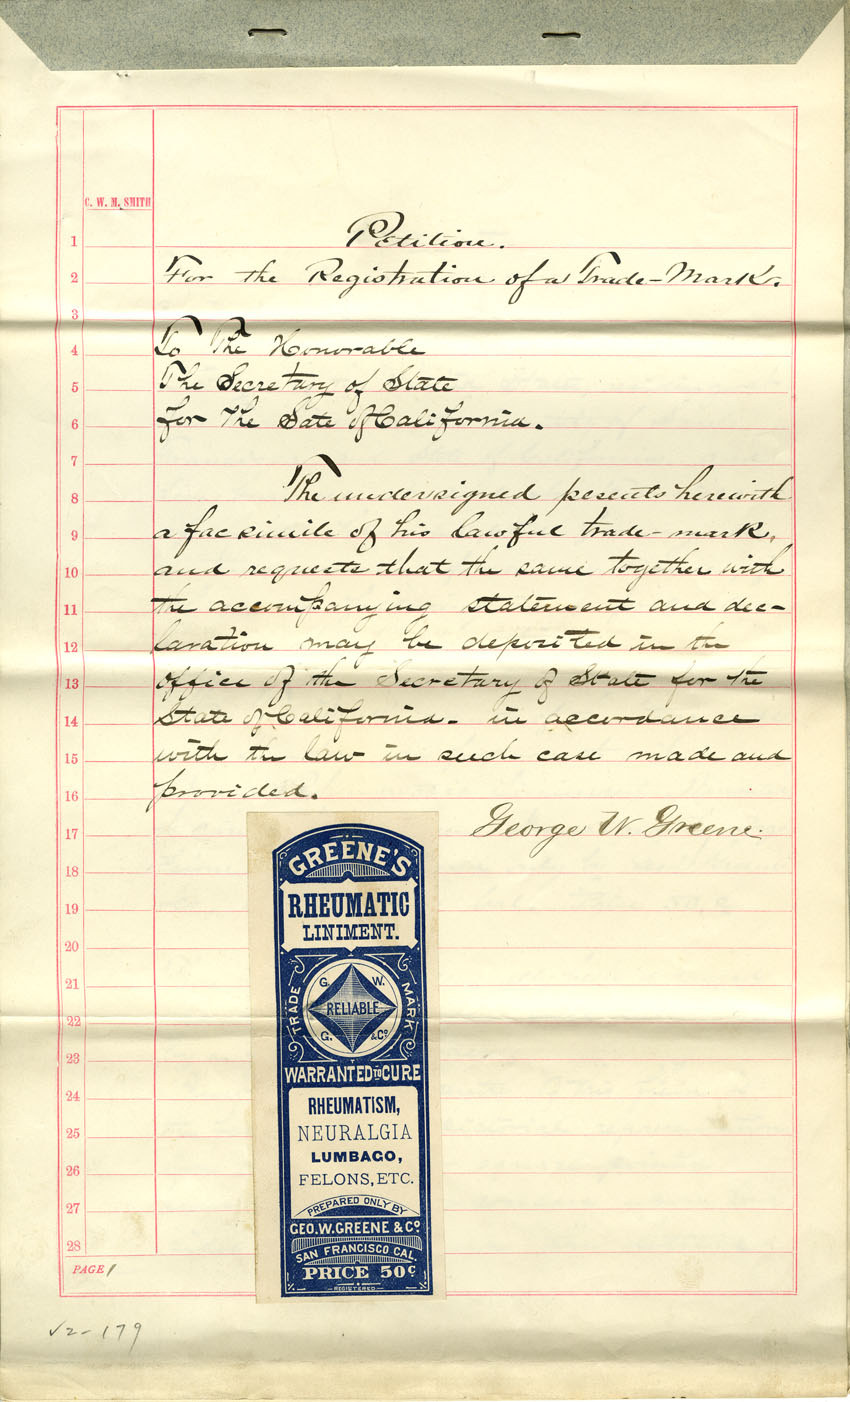 C. W. M. SMITH
1 Petition.
2 For the Registration of a Trade-Mark.
3
4 To The Honorable
5 The Secretary of State
6 for The Sate of California.
7
8 The undersigned pesents herewith
9 a fac simile of his lawful trade-mark,
10 and requests that the same together with
11 the accompanying statement and dec-
12 laration may be deposited in the
13 office of the Secretary of State for the
14 State of California. in accordance
15 with the law in such case made and
16 provided.
17 George W. Greene.
18
19
20
21
22
23
24
25
26
27
28
GREENE'S
RHEUMATIC
LINIMENT.
TRADE MARK
G. W.
RELIABLE
G. & Co
WARRANTED TO CURE
RHEUMATISM,
NEURALGIA
LUMBAGO,
FELONS, ETC.
PREPARED ONLY BY
GEO. W. GREENE & Co
SAN FRANCISCO CAL.
PRICE 50c
REGISTERED
PAGE 1
V2-179